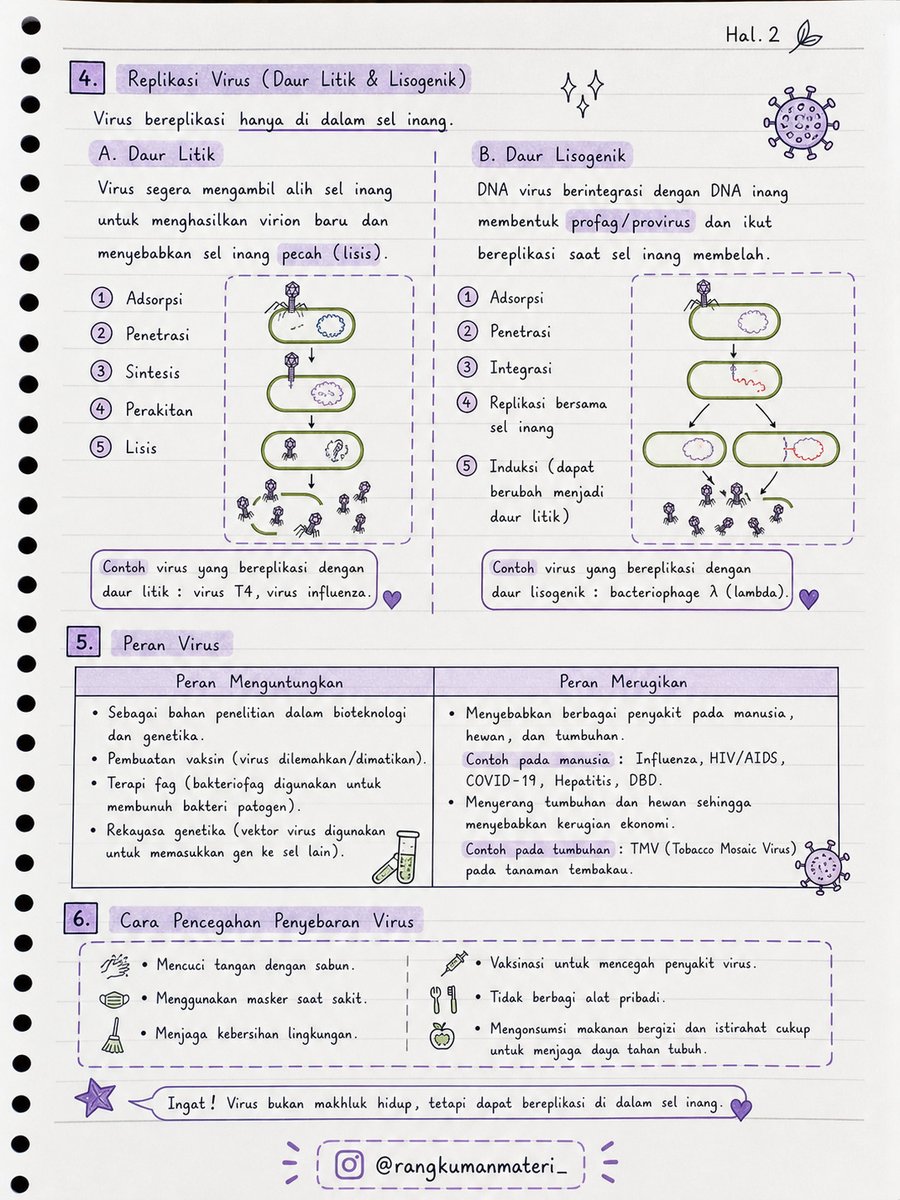 Hal. 2
4. Replikasi Virus (Daur Litik & Lisogenik)
Virus bereplikasi hanya di dalam sel inang.
A. Daur Litik
Virus segera mengambil alih sel inang
untuk menghasilkan virion baru dan
menyebabkan sel inang pecah (lisis).
1 Adsorpsi
2 Penetrasi
3 Sintesis
4 Perakitan
5 Lisis
Contoh virus yang bereplikasi dengan
daur litik : virus T4, virus influenza.
B. Daur Lisogenik
DNA virus berintegrasi dengan DNA inang
membentuk profag/provirus dan ikut
bereplikasi saat sel inang membelah.
1 Adsorpsi
2 Penetrasi
3 Integrasi
4 Replikasi bersama
sel inang
5 Induksi (dapat
berubah menjadi
daur litik)
Contoh virus yang bereplikasi dengan
daur lisogenik : bacteriophage λ (lambda).
5. Peran Virus
Peran Menguntungkan
• Sebagai bahan penelitian dalam bioteknologi
dan genetika.
• Pembuatan vaksin (virus dilemahkan/dimatikan).
• Terapi fag (bakteriofag digunakan untuk
membunuh bakteri patogen).
• Rekayasa genetika (vektor virus digunakan
untuk memasukkan gen ke sel lain).
Peran Merugikan
• Menyebabkan berbagai penyakit pada manusia,
hewan, dan tumbuhan.
Contoh pada manusia : Influenza, HIV/AIDS,
COVID-19, Hepatitis, DBD.
• Menyerang tumbuhan dan hewan sehingga
menyebabkan kerugian ekonomi.
Contoh pada tumbuhan : TMV (Tobacco Mosaic Virus)
pada tanaman tembakau.
6. Cara Pencegahan Penyebaran Virus
• Mencuci tangan dengan sabun.
• Menggunakan masker saat sakit.
• Menjaga kebersihan lingkungan.
• Vaksinasi untuk mencegah penyakit virus.
• Tidak berbagi alat pribadi.
• Mengonsumsi makanan bergizi dan istirahat cukup
untuk menjaga daya tahan tubuh.
Ingat! Virus bukan makhluk hidup, tetapi dapat bereplikasi di dalam sel inang.
@rangkumanmateri_